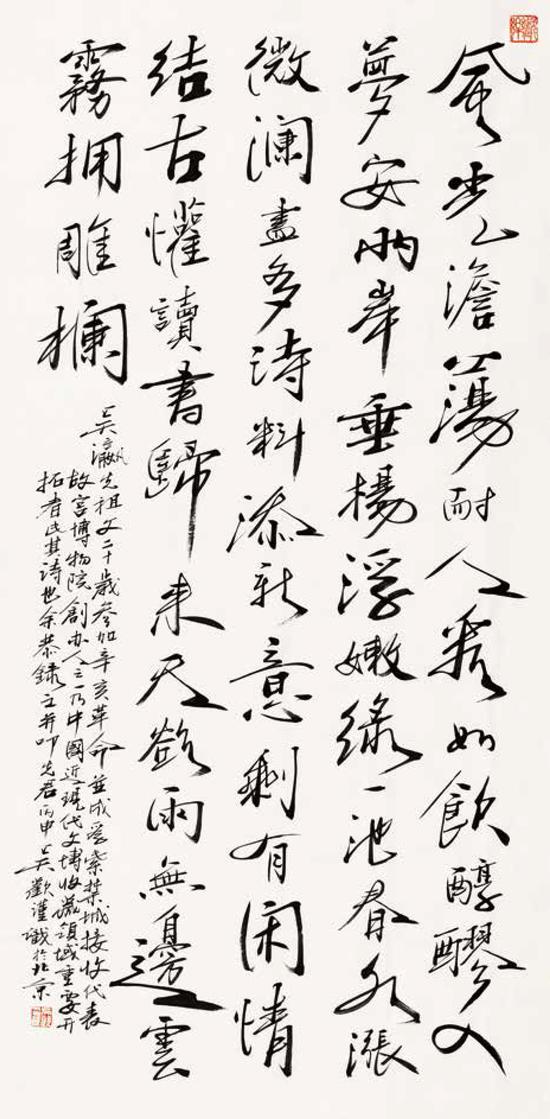 風光澹蕩耐人看如飲醇醪入
夢安兩岸垂楊浮嫩綠一池春水漲
微瀾盡多詩料添新意剩有閑情
結古懽讀書歸來天欲雨無邊雲
霧擁雕欄
吳瀛先祖父二十歲參加辛亥革命並成爲紫禁城接收代表
故宮博物院創办人之一乃中國近現代文博收藏領域重要开
拓者此其詩也余恭錄之并叩先君丙申吳歡謹識於北京